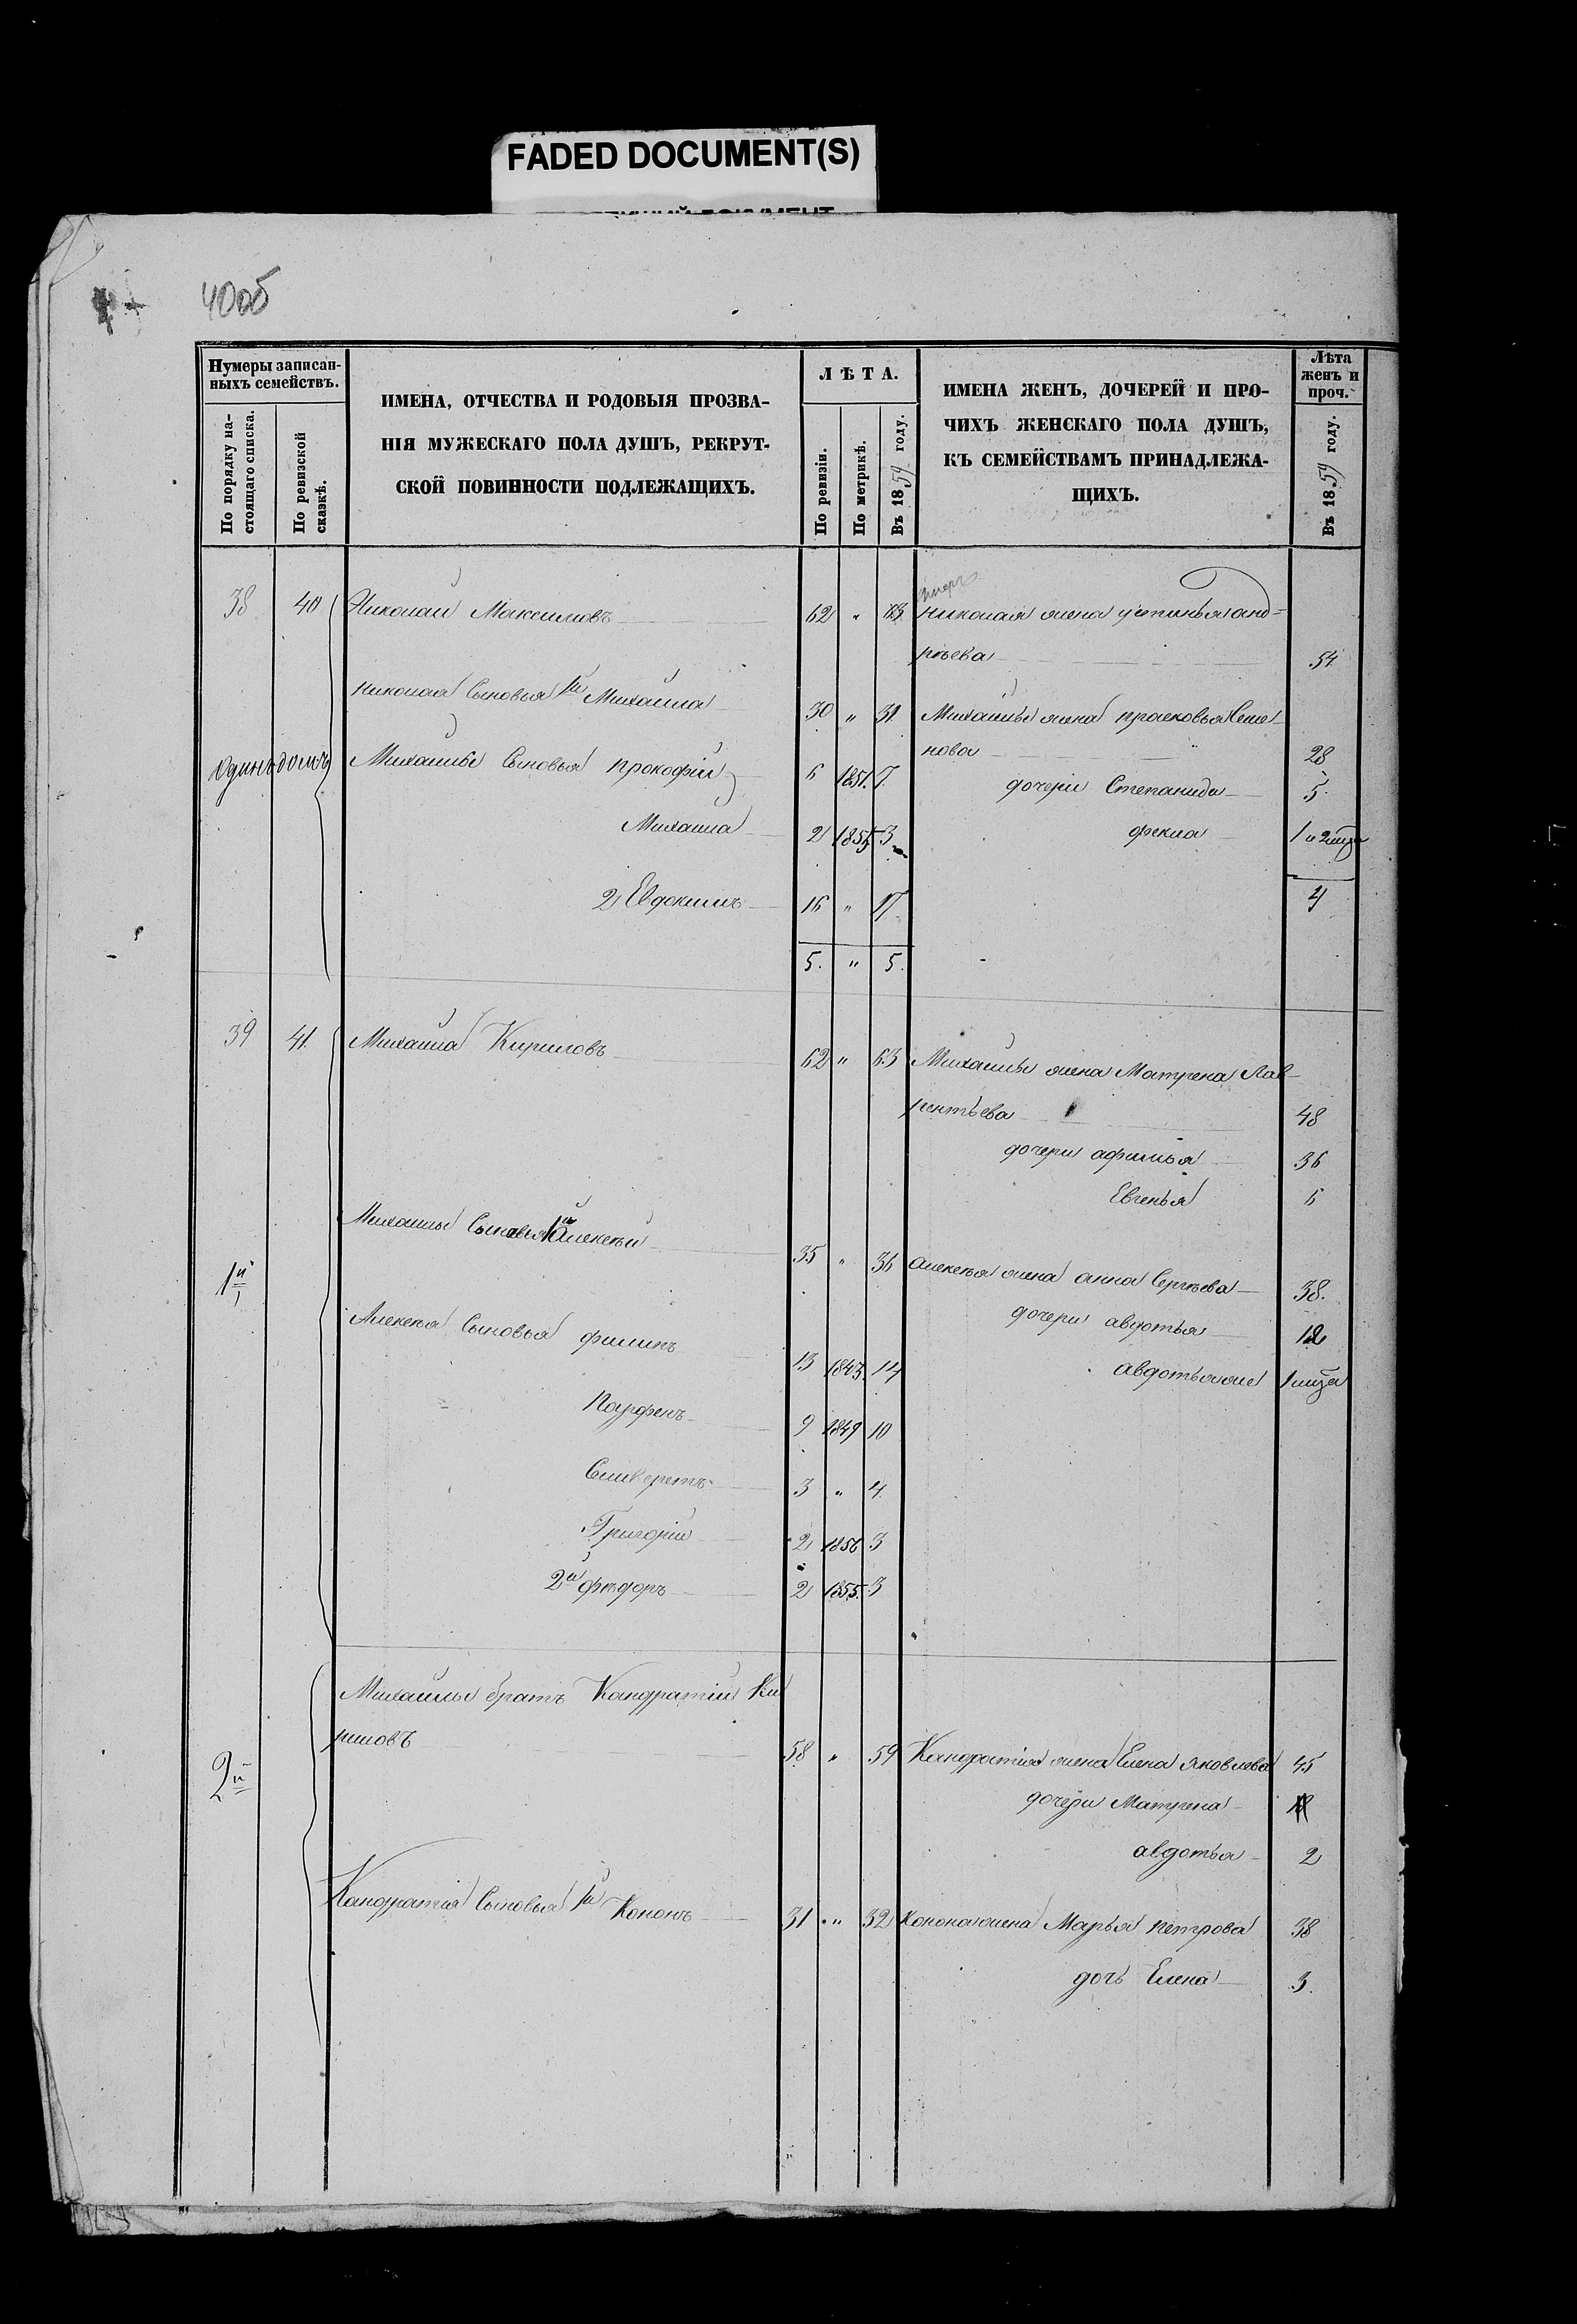 FADED DOCUMENT(S)
40об
Нумеры записан-
ныхъ семействъ.
По порядку на-
стоящаго списка.
По ревизской
сказкѣ.
ИМЕНА, ОТЧЕСТВА И РОДОВЫЯ ПРОЗВА-
НІЯ МУЖЕСКАГО ПОЛА ДУШЪ, РЕКРУТ-
СКОЙ ПОВИННОСТИ ПОДЛЕЖАЩИХЪ.
ЛѢТА.
По ревизіи.
По метрикѣ.
Въ 1859 году.
ИМЕНА ЖЕНЪ, ДОЧЕРЕЙ И ПРО-
ЧИХЪ ЖЕНСКАГО ПОЛА ДУШЪ,
КЪ СЕМЕЙСТВАМЪ ПРИНАДЛЕЖА-
ЩИХЪ.
Лѣта
женъ и
проч.
Въ 1859 году.
умеръ
38 40 Николай Максимовъ 62 " 63 Николая жена устинья анд=
рѣева 54
Николая Сыновья 1й Михайла 30 " 31 Михайлы жена прасковья Семе-
нова 28
одинъ домъ Михайлы Сыновья прокофій 6 1851. 7.
дочери Степанида 5.
Михайла 2 1855 3 фекла 1 и 2 мца
2 Евдокимъ 16 " 17 4
5. " 5.
39 41. Михайла Кириловъ 62 " 63 Михайлы жена Матрена Лав-
рентьева 48
дочери афимья 36
Евгенья 6
1й Михайлы Сыновья 1й Алексѣй 35 " 36 алексѣя жена анна Сергѣева 38.
дочери авдотья 12
Алексѣя Сыновья филипъ 13 1843. 14 авдотья же 1 мца
Парфенъ 9 1849 10
Силверстъ 3 " 4
Григорій 2 1856 3
2й фѣдоръ 2 1855. 3
Михайлы братъ Кандратій Ки
риловъ 58 " 59 Кандратія жена Елена яковлева 45
2й
дочери Матрена
авдотья 2
Кандратія Сыновья 1й Кононъ 31 " 32 Конона жена Марья петрова 38
дочь Елена 3.